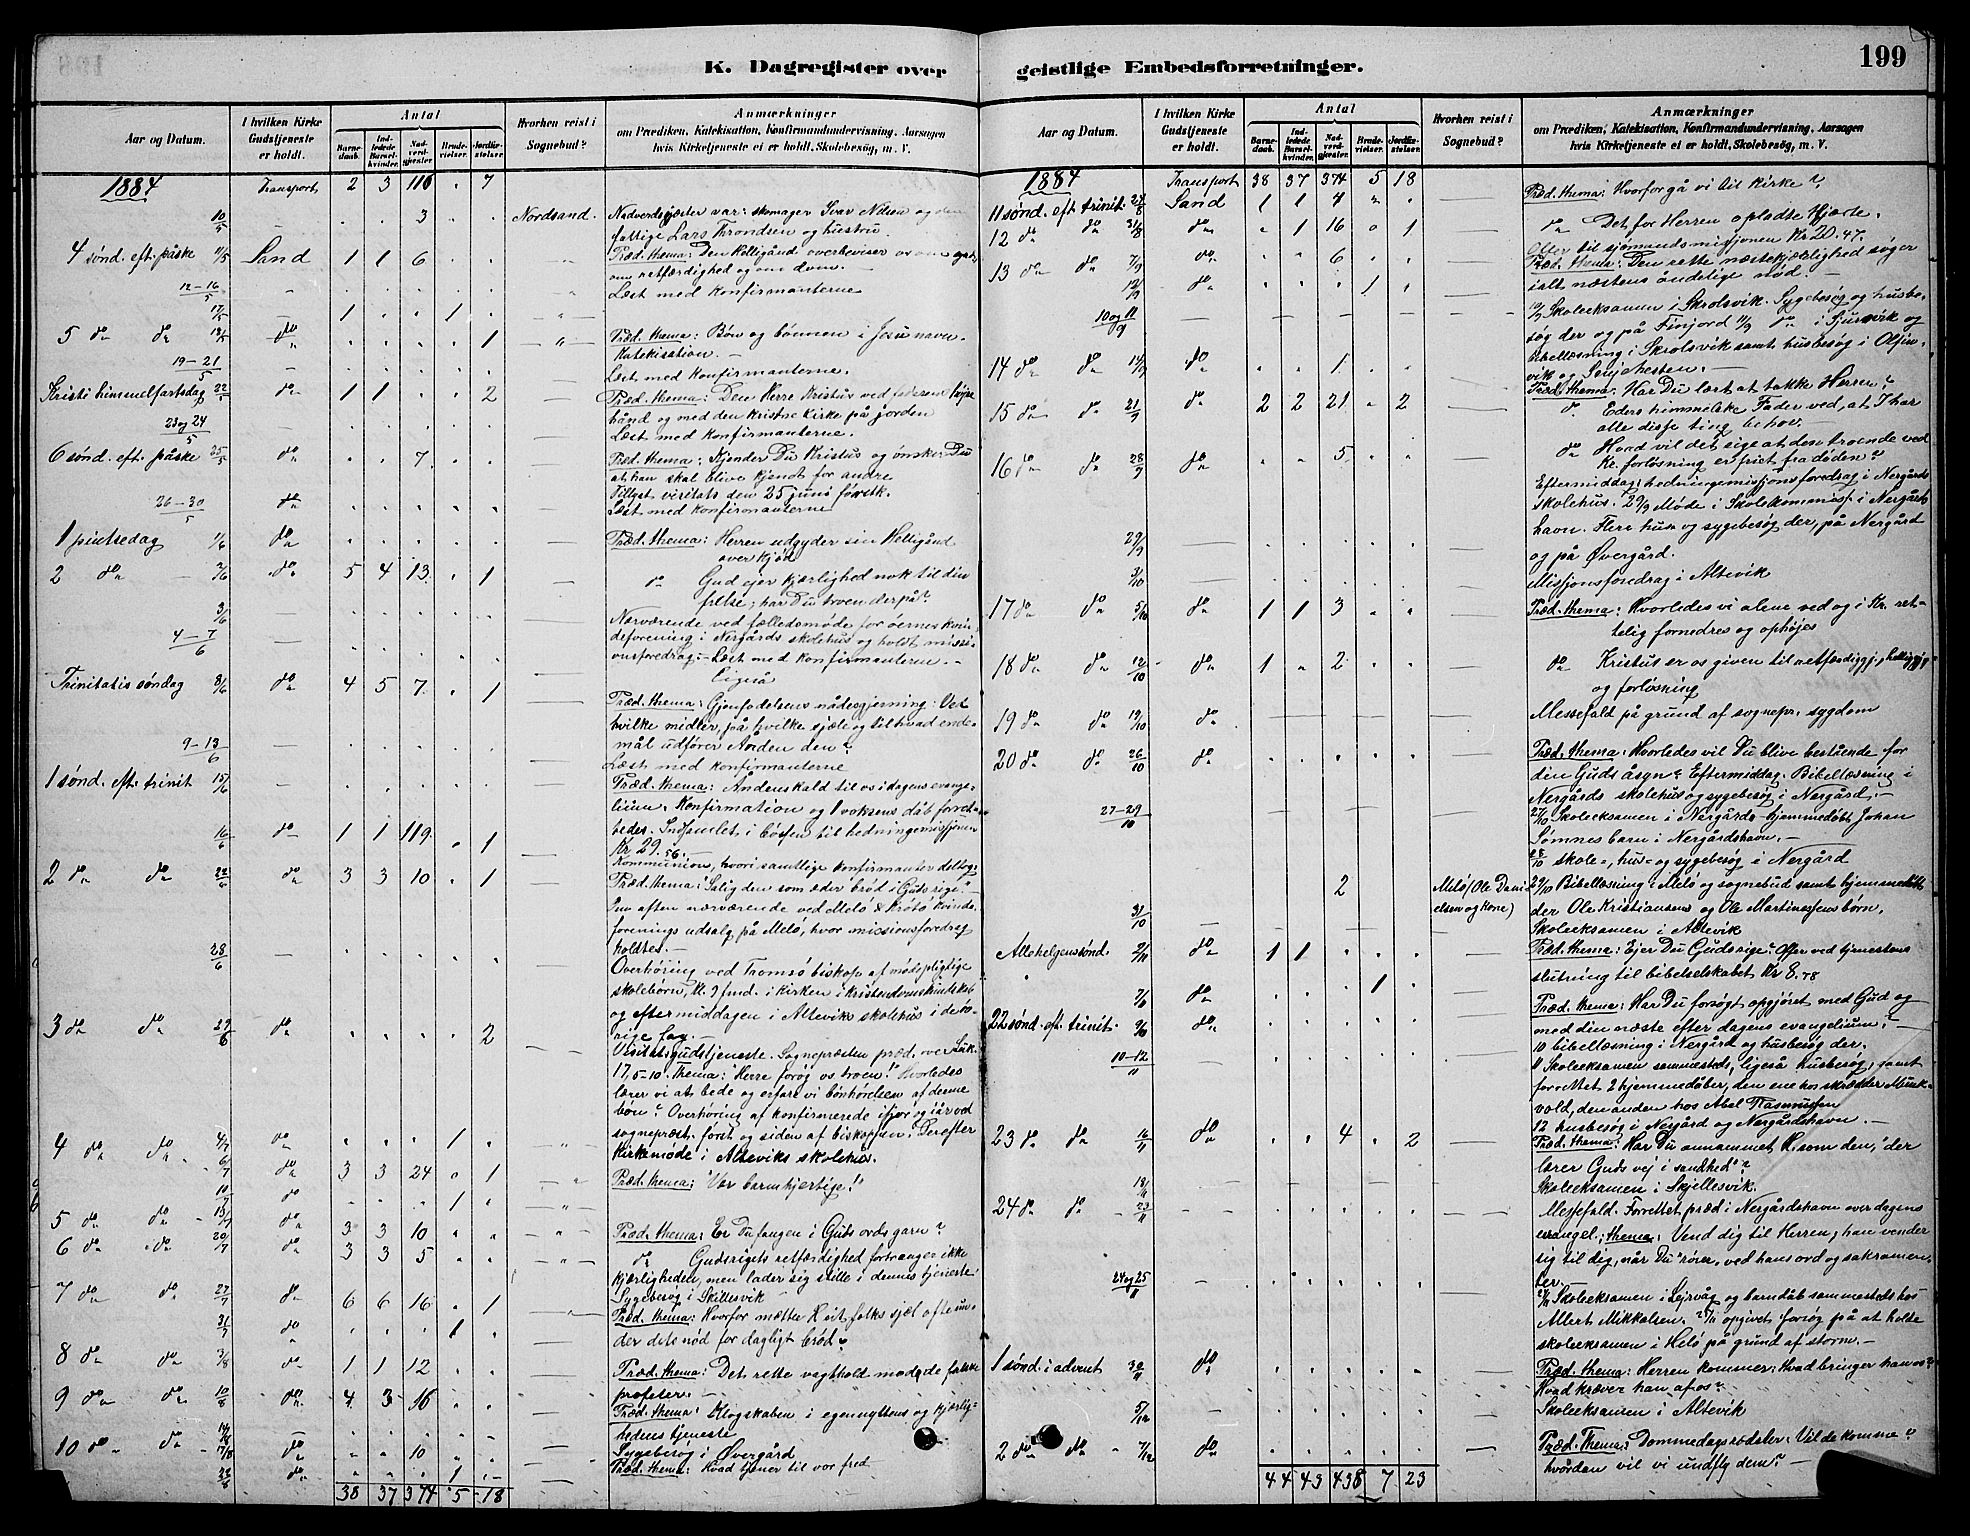 K. Dagregister over geistlige Embedsforretninger.
199
Aar og Datum.
I hvilken Kirke Gudstjeneste er holdt.
Antal
Barnedaab.
Indledede Barselkvinder.
Nadverdgjester.
Brudevielser.
Jordfæstelser.
Hvorhen reist i Sognebud?
Anmærkninger
om Prædiken, Katekisation, Konfirmandundervisning, Aarsagen
hvis Kirketjeneste ei er holdt, Skolebesøg, m. V.
1884 Transport 2 3 116 . 7
10/5 — . . 3 . . Nordsand. Nadverdsgjæster var: skomager Ivar Nilsen og den
fattige Lars Trondsen og hustru.
4 sønd. eft. påske 11/5 Sand 1 1 6 . . Præd. thema: Den Helligånd overbeviser os om synd,
om retfærdighed og om dom.
12–16/5 Læst med konfirmanterne
17/5 1 . . 1 .
5 do do 18/5 do . . . . 1 Præd. thema: Bøn og bønnen i Jesu navn.
Katekisation. —
19–21/5 Læst med konfirmanterne.
Kristi himmelfartsdag 22/5 do 1 1 . . 2 Præd. thema: Den Herre Kristus ved faderens højre
hånd og med den kristne Kirke på jorden
23 og 24/5 Læst med konfirmanterne.
6 sønd. eft. påske 25/5 do . . 7 . . Præd. thema: Kjender Du Kristus og ønsker Du
at han skal blive kjendt for andre
Tillyst visitats den 25 juni førstk.
26–30/5 do Læst med konfirmanterne
1 pintsedag 1/6 do . . . . . Præd. thema: Herren udgyder sin Helligånd
over kjød
2 do — 2/6 do 5 4 13 . 1 — do Gud ejer kjærlighed nok til din
frelse; har Du troen derpå?
3/6 Nærværende ved fællesmøde for øernes kvin-
deforening i Nergårds skolehus og holdt missi-
onsforedrag. — Læst med konfirmanterne. —
4–7/6 — Ligeså
Trinitatis søndag 8/6 do 4 5 7 . 1 Præd. thema: Gjenfødelsens nådesgjerning: Ved
hvilke midler, på hvilke sjæle og til hvad ende-
mål udfører Ånden den?
9–13/6 — Læst med konfirmanterne
1 sønd. eft. trinit 15/6 Præd. thema: Åndens kald til os i dagens evange-
lium. Konfirmation og 1 voksens dåb forret-
tedes. Indsamlet i bøssen til hedningemissjonen
Kr 29.56.
16/6 do 1 1 119 . 1 Kommunion, hvori samtlige konfirmanter deltog
2 do do 22/6 do 3 3 10 . 1 Præd. thema: "Salig den som æder brød i Guds rige." —
S.m aften nærværende ved Melø & Krøtø kvinde-
forenings udsalg på Melø, hvor missionsforedrag
holdtes. —
28/6 Overhøring ved Tromsø biskop af mødepligtige
skolebørn, kl. 9 fmd. i kirken i kristendomskundskab
og eftermiddagen i Alteviks skolehus i de øv-
rige fag. —
3 do do 29/6 do . . . . 2 Visitatsgudstjeneste. Sognepræsten præd. over Luk.
17,5–10. thema: "Herre forøg os troen!" Hvorledes
lærer vi at bede og erfare vi bønhørelsen af denne
bøn? Overhøring af konfirmerede ifjor og iår ved
sognepræst. først og siden af biskoppen. Derefter
Kirkemøde i Alteviks skolehus.
4 do do 4/7 do . . . 1 .
6/7 do 3 3 24 . 1 Præd. thema: "Vær barmhjertige!"
10/7 do . . . 1 .
5 do do 13/7 do 3 3 10 . . Præd. thema: Er Du fangen i Guds ords garn?
6 do do 20/7 do 3 3 5 . . do Gudsrigets retfærdighed fortrænger ikke
kjærligheden, men lader sig stille i dennes tjeneste
Sygebesøg i Skillesvik —
7 do do 27/7 do 6 6 16 . 1 Præd. thema: Hvorfor mætter H sit folks sjæl ofte un-
der dets nød for dagligt brød?
31/7 do . . . 1 .
8 do do 3/8 do 1 1 12 . . Præd. thema: Det rette vagthold mod de falske
profeter. —
9 do do 10/8 do 4 3 16 . . Præd. thema: Klogskaben i egennyttens og kjærlig-
hedens tjeneste
14/8 — Sygebesøg i Øvergård
10 do do 17/8 do . . 10 . . Præd. thema: Hvad tjener til vor fred
22/8 do . . . 1 .
38 37 374 5 18
Aar og Datum.
I hvilken Kirke Gudstjeneste er holdt.
Antal
Barnedaab.
Indledede Barselkvinder.
Nadverdgjester.
Brudevielser.
Jordfæstelser.
Hvorhen reist i Sognebud?
Anmærkninger
om Prædiken, Katekisation, Konfirmandundervisning, Aarsagen
hvis Kirketjeneste ei er holdt, Skolebesøg, m. V.
1884 Transport 38 37 374 5 18
11 sønd. eft. trinit. 24/8 Sand 1 1 4 . . Præd. thema: Hvorfor gå vi til kirke?
12 do do 31/8 do . 1 16 . 1 do Det for Herren oplodte Hjærte.
Offer til sjømandsmissjonen Kr 20.47.
13 do do 7/9 do . . 6 . . Præd. thema: Den rette næstekjærlighed søger
ialt næstens åndelige nød. —
12/9 do . . . 1 .
10 og 11/9 — 10/9 Skoleeksamen i Skrolsvik. Sygebesøg og husbe-
søg der og på Finjord 11/9 do i Sjursvik og
bibellæsning i Skrolsvik samt husbesøg i Olfin-
vik og Senjehesten. —
14 do do 14/9 do . . 1 . . Præd. thema: Har Du lært at takke Herren?
15 do do 21/9 do 2 2 21 . 2 do Eders himmelske Fader ved, at I har
alle disse ting behov. —
16 do do 28/9 do . . 5 . . do Hvad vil det sige at den troende ved
Kr. forløsning er friet fra døden?
Eftermiddag: hedningemissjonsforedrag i Nergårds
skolehus. 29/9 Møde i Skolekommiss. i Nergårds-
havn. Flere hus og sygebesøg der, på Nergård
og på Øvergård.
29/9
3/10 — Missjonsforedrag i Altevik
17 do do 5/10 do 1 1 3 . . Præd. thema: Hvorledes vi alene ved og i Kr. ret-
telig fornedres og ophøjes
18 do do 12/10 do 1 . 2 . . do Kristus er os given til retfærdiggj., helliggj.
og forløsning
19 do do 19/10 do Messefald på grund af sognepr. sygdom
20 do do 26/10 do Præd. thema: Hvorledes vil Du blive bestående for
den Guds åsyn? Eftermiddag: Bibellæsning i
Nergårds skolehus og sygebesøg i Nergård. —
27–29/10 27/10 Skoleeksamen i Nergård. hjemmedøbt Johan
Sømnes barn i Nergårdshavn. —
28/10 skole-, hus- og sygebesøg i Nergård
2 Melø (Ole Dani
elsen og kone) 29/10 Bibellæsning i Melø og sognebud samt hjemmedøbt
der Ole Kristiansens og Ole Martinessens børn.
31/10 — Skoleeksamen i Altevik
Allehelgensønd. 2/11 do 1 1 . . . Præd. thema: Ejer Du Gudsrige? Offer ved tjenestens
slutning til bibelselskabet Kr 8.78
7/11 do . . . 1 .
22 sønd. eft. trinit. 9/11 do Præd. thema: Har Du forsøgt opgjøret med Gud og
med din næste efter dagens evangelium? —
10–12/11 — 10 bibellæsning i Nergård og husbesøg der.
11 Skoleeksamen sammesteds, ligeså husbesøg, samt
forrettet 2 hjemmedåber, den ene hos skrædder Munk-
vold, den anden hos Abel Rasmussen
12 husbesøg i Nergård og Nergårdshavn. —
23 do do 16/11 do . . 4 . 2 Præd. thema: Har Du annammet H. som den, "der
lærer Guds vej i sandhed"?
18/11 Skoleeksamen i Skjellesvik.
24 do do — 23/11 — Messefald. Forrettet præd i Nergårdshavn over dagens
evangel.; thema: Vend dig til Herren; han vender
sig til dig, når Du rører ved hans ord og sakramen-
ter. —
24 og 25/11 24/11 Skoleeksamen i Lejrvåg og barndåb sammesteds hos
Albert Mikkelsen. 25/11 opgivet forsøg på at holde
skoleeksamen i Melø på grund af storm. —
1 sønd. i advent 30/11 do Præd. thema: Herren kommer: Hvad bringer han os?
Hvad kræver han af os?
5/12 Skoleeksamen i Altevik
2 do do 7/12 do Præd. Thema: Dommedagsrødsler: Vil de komme?
hvordan vil vi undfly dem? —
44 43 438 7 23